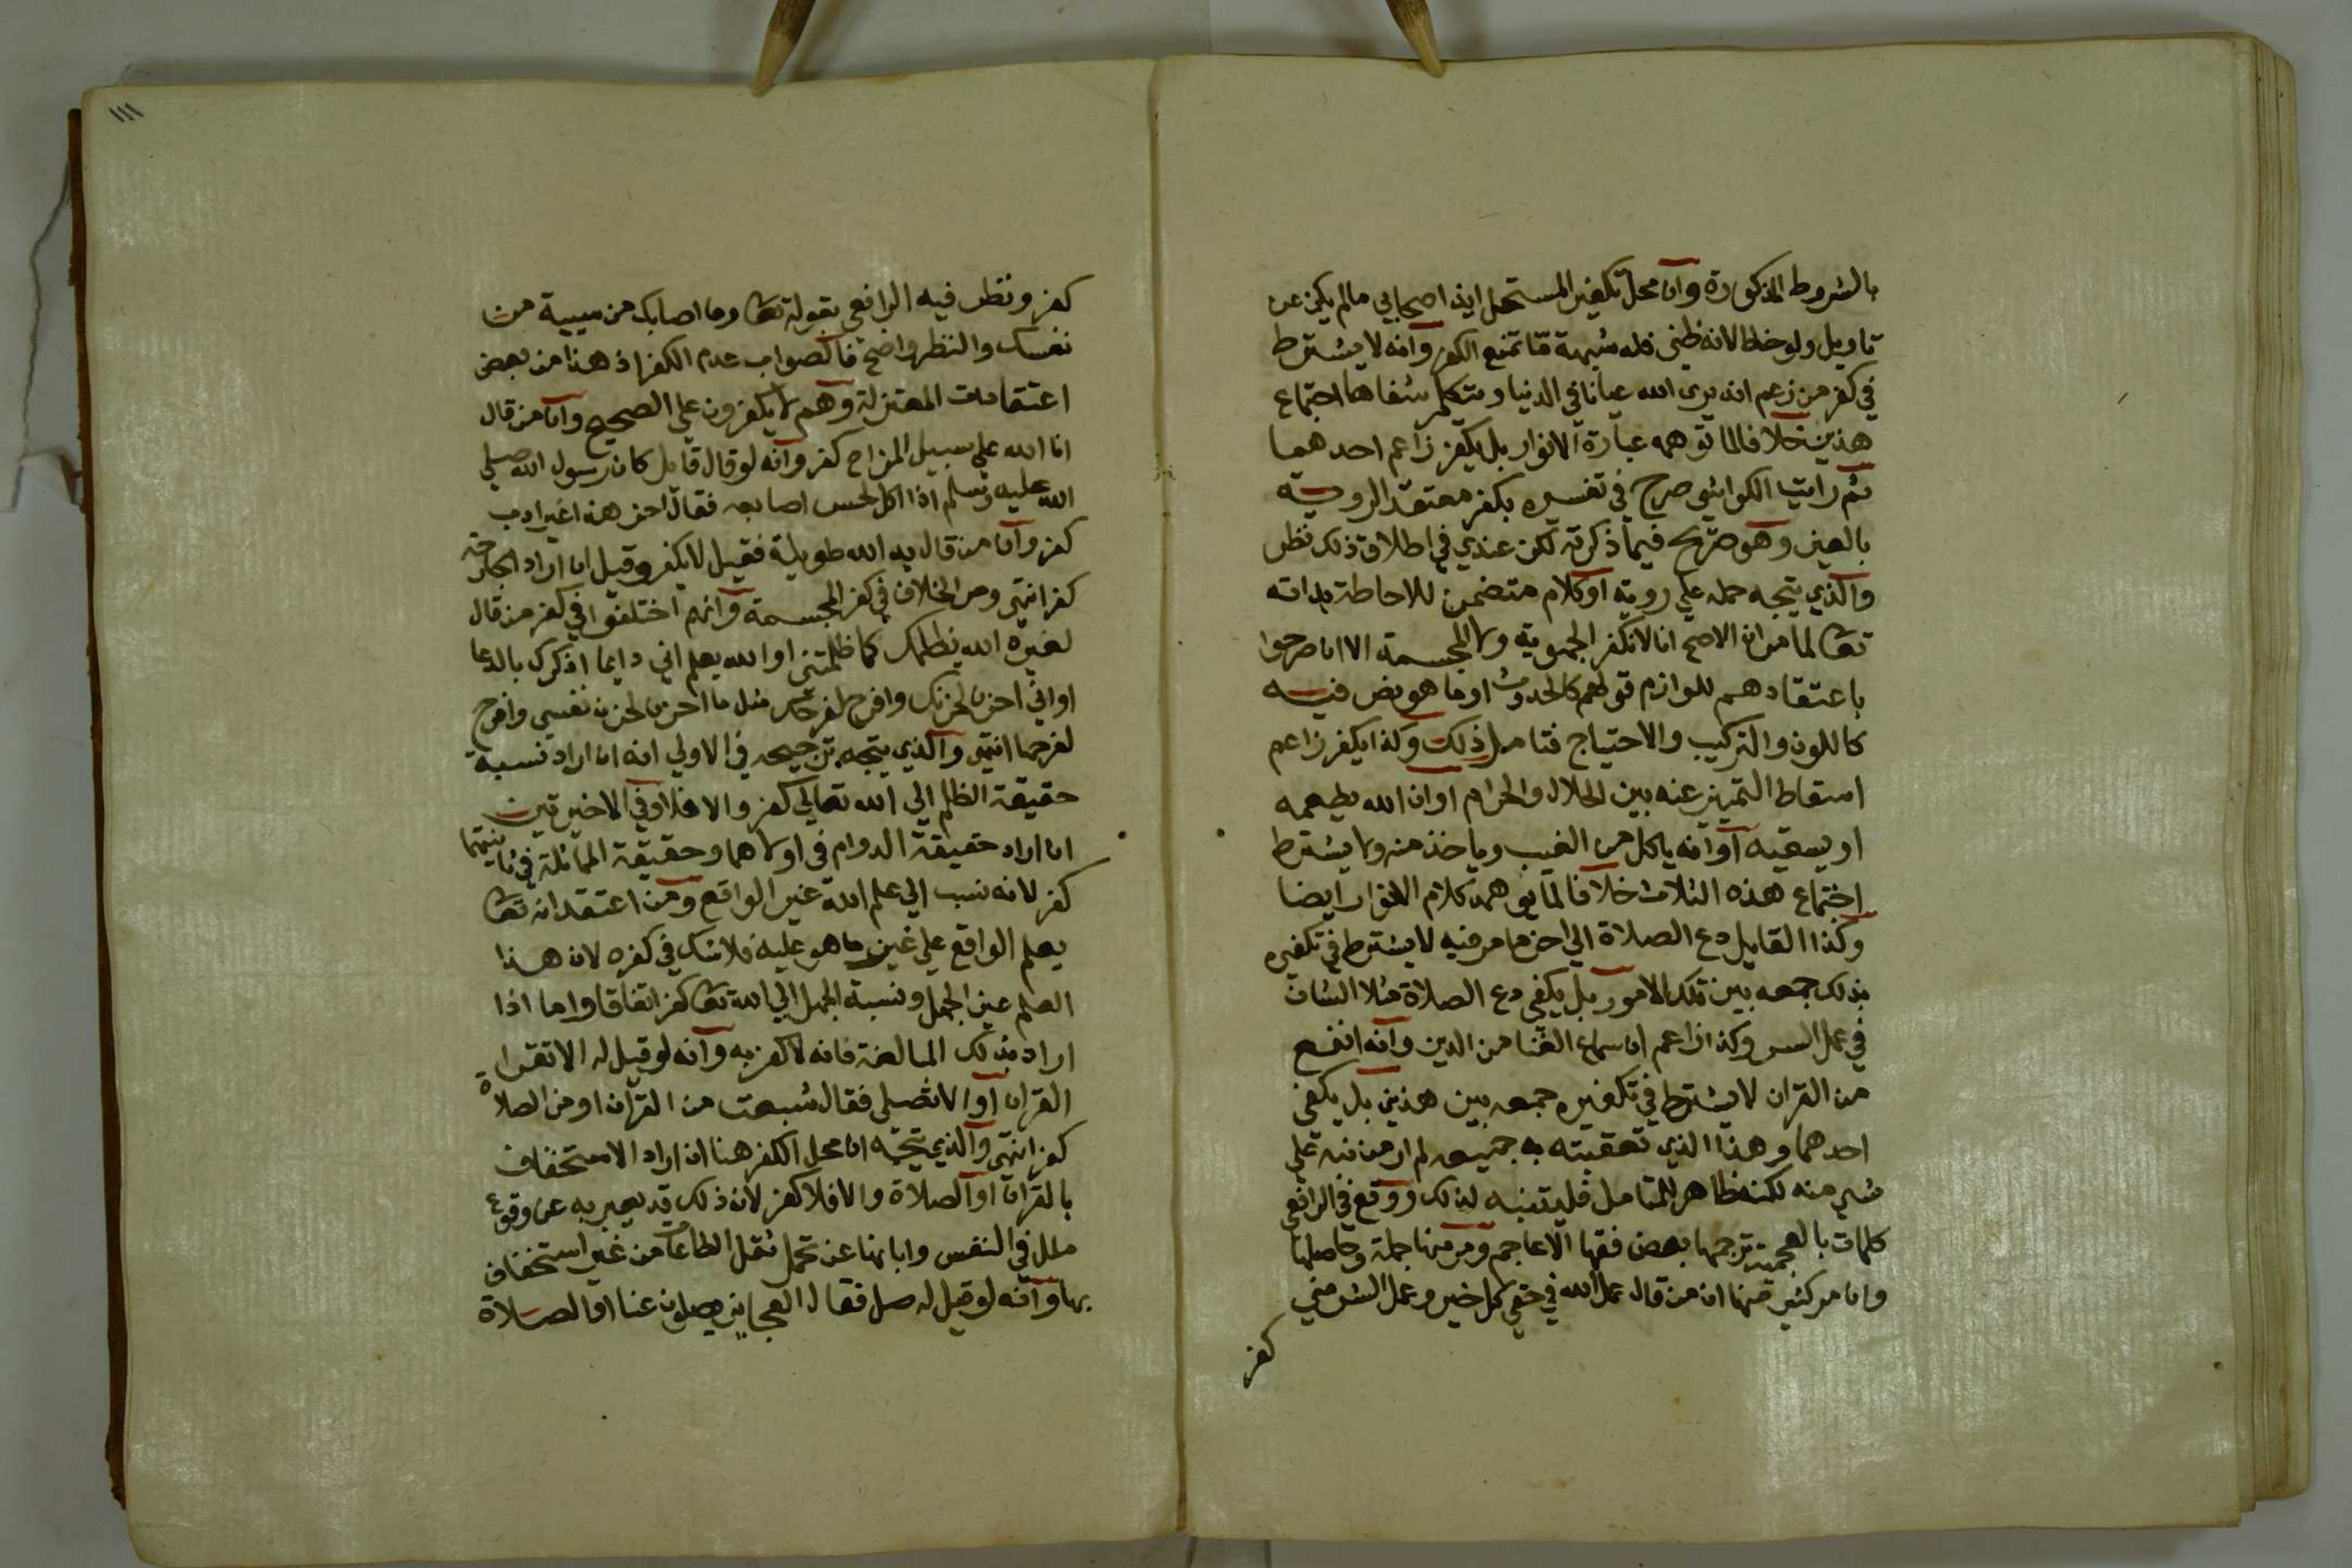 بالشروط المذكورة وان محل تكفير المستحل ايذا صحابي مالم يكن عن
تاويل ولو خطا لانه ظني فله شبهة ما تمنع الكفر وانه لا يشترط
في كفر من زعم انه يرى الله عيانا في الدنيا ويتكلم شفاها اجتماع
هذين خلافا لما توهمه عبارة الانوار بل يكفر زاعم احدهما
ثم رايت الكواشي صرح في تفسيره بكفر معتقد الروية
بالعين وهو صريح فيما ذكرته لكن عندي في اطلاق ذلك نظر
والذي يتجه حمله علي روية او كلام متضمن للاحاطة بذاته
تعا لما مر ان الاصح انا لا نكفر الجهوية ولا المجسمة الا ان صرحوا
باعتقادهم للوازم قولهم كالحدوث او ما هو نص فيه
كاللون والتركيب والاحتياج فتامل ذلك وكذا يكفر زاعم
اسقاط التمييز عنه بين الحلال والحرام او ان الله يطعمه
او يسقيه او انه ياكل من الغيب وياخذ منه ولا يشترط
اجتماع هذه الثلاث خلافا لما يوهمه كلام الانوار ايضا
وكذا القايل دع الصلاة الي اخر ما مر فيه لا يشترط في تكفيره
بذلك جمعه بين تلك الامور بل يكفي دع الصلاة مثلا الشان
في عمل السر وكذا زاعم ان سماع الغنا من الدين وانه انفع
من القران لا يشترط في تكفيره جمعه بين هذين بل يكفي
احدهما وهذا الذي تعقبته به جميعه لم ار من نبه علي
شي منه لكنه ظاهر للمتامل فليتنبه لذلك ووقع في الرافعي
كلمات بالعجمية ترجمها بعض فقها الاعاجم ومر منها جملة وحاصلها
وان مر كثير منها ان من قال عمل الله في حقي كل خير وعمل الشر مني
كفر
١١١
كفر ونظر فيه الرافعي بقوله تعا وما اصابك من سيية من
نفسك والنظر واضح فالصواب عدم الكفر اذ هذا من بعض
اعتقادات المعتزلة وهم لا يكفرون علي الصحيح وان من قال
انا الله علي سبيل المزاح كفر وانه لو قال قايل كان رسول الله صلي
الله عليه وسلم اذا اكل لحس اصابعه فقال اخر هذا غير ادب
كفر وان من قال يد الله طويلة فقيل لا يكفر وقيل ان اراد الجارحة
كفر انتهى ومر الخلاف في كفر المجسمة وانهم اختلفوا في كفر من قال
لغيره الله يظلمك كما ظلمتني او الله يعلم اني دايما اذكرك بالدعا
او اني احزن لحزنك وافرح لفرحك مثل ما احزن لحزن نفسي وافرح
لفرحها انتهى والذي يتجه ترجيحه في الاولي انه ان اراد نسبة
حقيقة الظلم الي الله تعالي كفر والا فلا وفي الاخيرتين
ان اراد حقيقة الدوام في اولاهما وحقيقة المماثلة في ثانيتهما
كفر لانه نسب الي علم الله غير الواقع ومن اعتقد انه تعا
يعلم الواقع علي غير ما هو عليه فلا شك في كفره لان هذا
العلم عين الجهل ونسبة الجهل الي الله تعا كفر اتفاقا واما اذا
اراد بذلك المبالغة فانه لا كفر به وانه لو قيل له الا تقرا
القران او الا تصلي فقال شبعت من القران او من الصلاة
كفر انتهى والذي يتجه ان محل الكفر هنا ان اراد الاستخفاف
بالقران او الصلاة والا فلا كفر لان ذلك قد يعبر به عن وقوع
ملل في النفس وابايها عن تحمل ثقل الطاعات من غير استخفاف
بها وانه لو قيل له صل فقال العجايز يصلون عنا او الصلاة